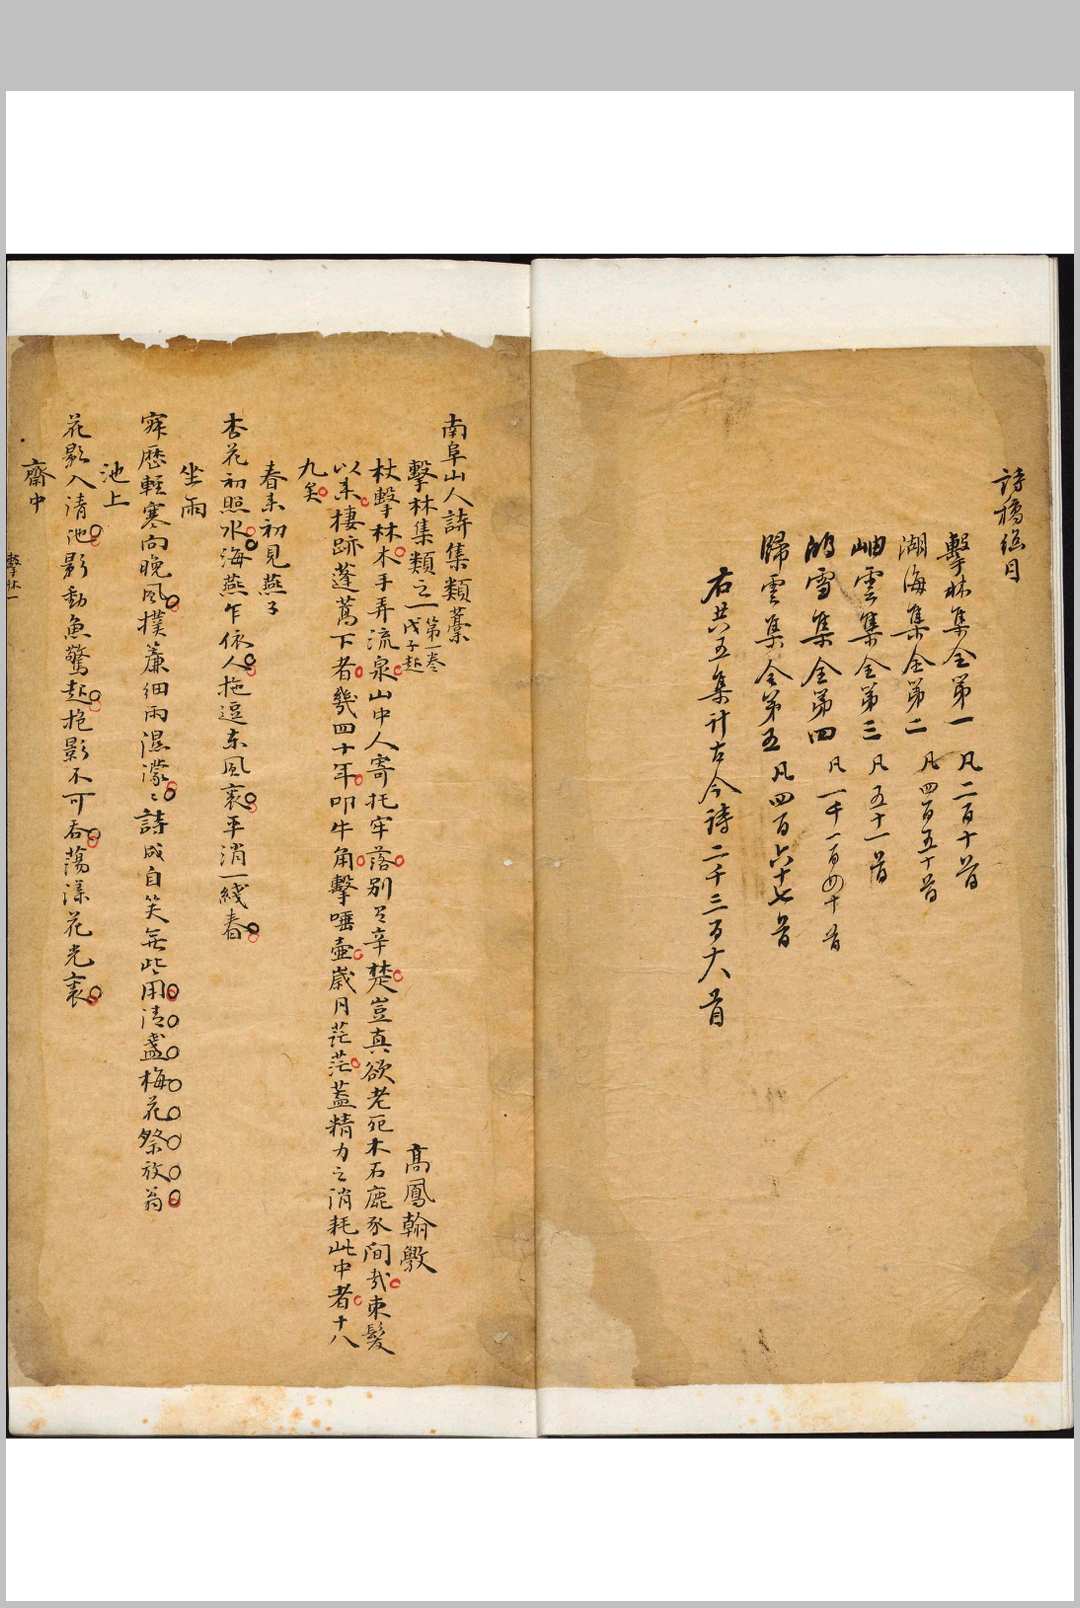 詩稿總目
擊林集全第一 凡二百十首
湖海集全第二 凡四百五十首
岫雲集全第三 凡五十一首
鴻雪集全第四 凡一千一百四十首
歸雲集全第五 凡四百六十七首
右共五集計古今詩二千三百十八首
南阜山人詩集類藁
擊林集類之一 第一卷 戊子起
高鳳翰
杖擊林木手弄流泉山中人寄托牢落別是辛楚豈真欲老死木石鹿豕間哉束髮
以来棲跡蓬蒿下者幾四十年叩牛角擊唾壺歲月茫茫葢精力之消耗此中者十八
九矣
春来初見燕子
杏花初照水海燕乍依人拖逗东風裏平消一綫春
坐雨
寂歷輕寒向晚風撲簾細雨濕濛〻詩成自笑無些用清盞梅花祭放翁
池上
花影入清池影動魚驚起抱影不可吞蕩漾花光裏
齋中
擊林一